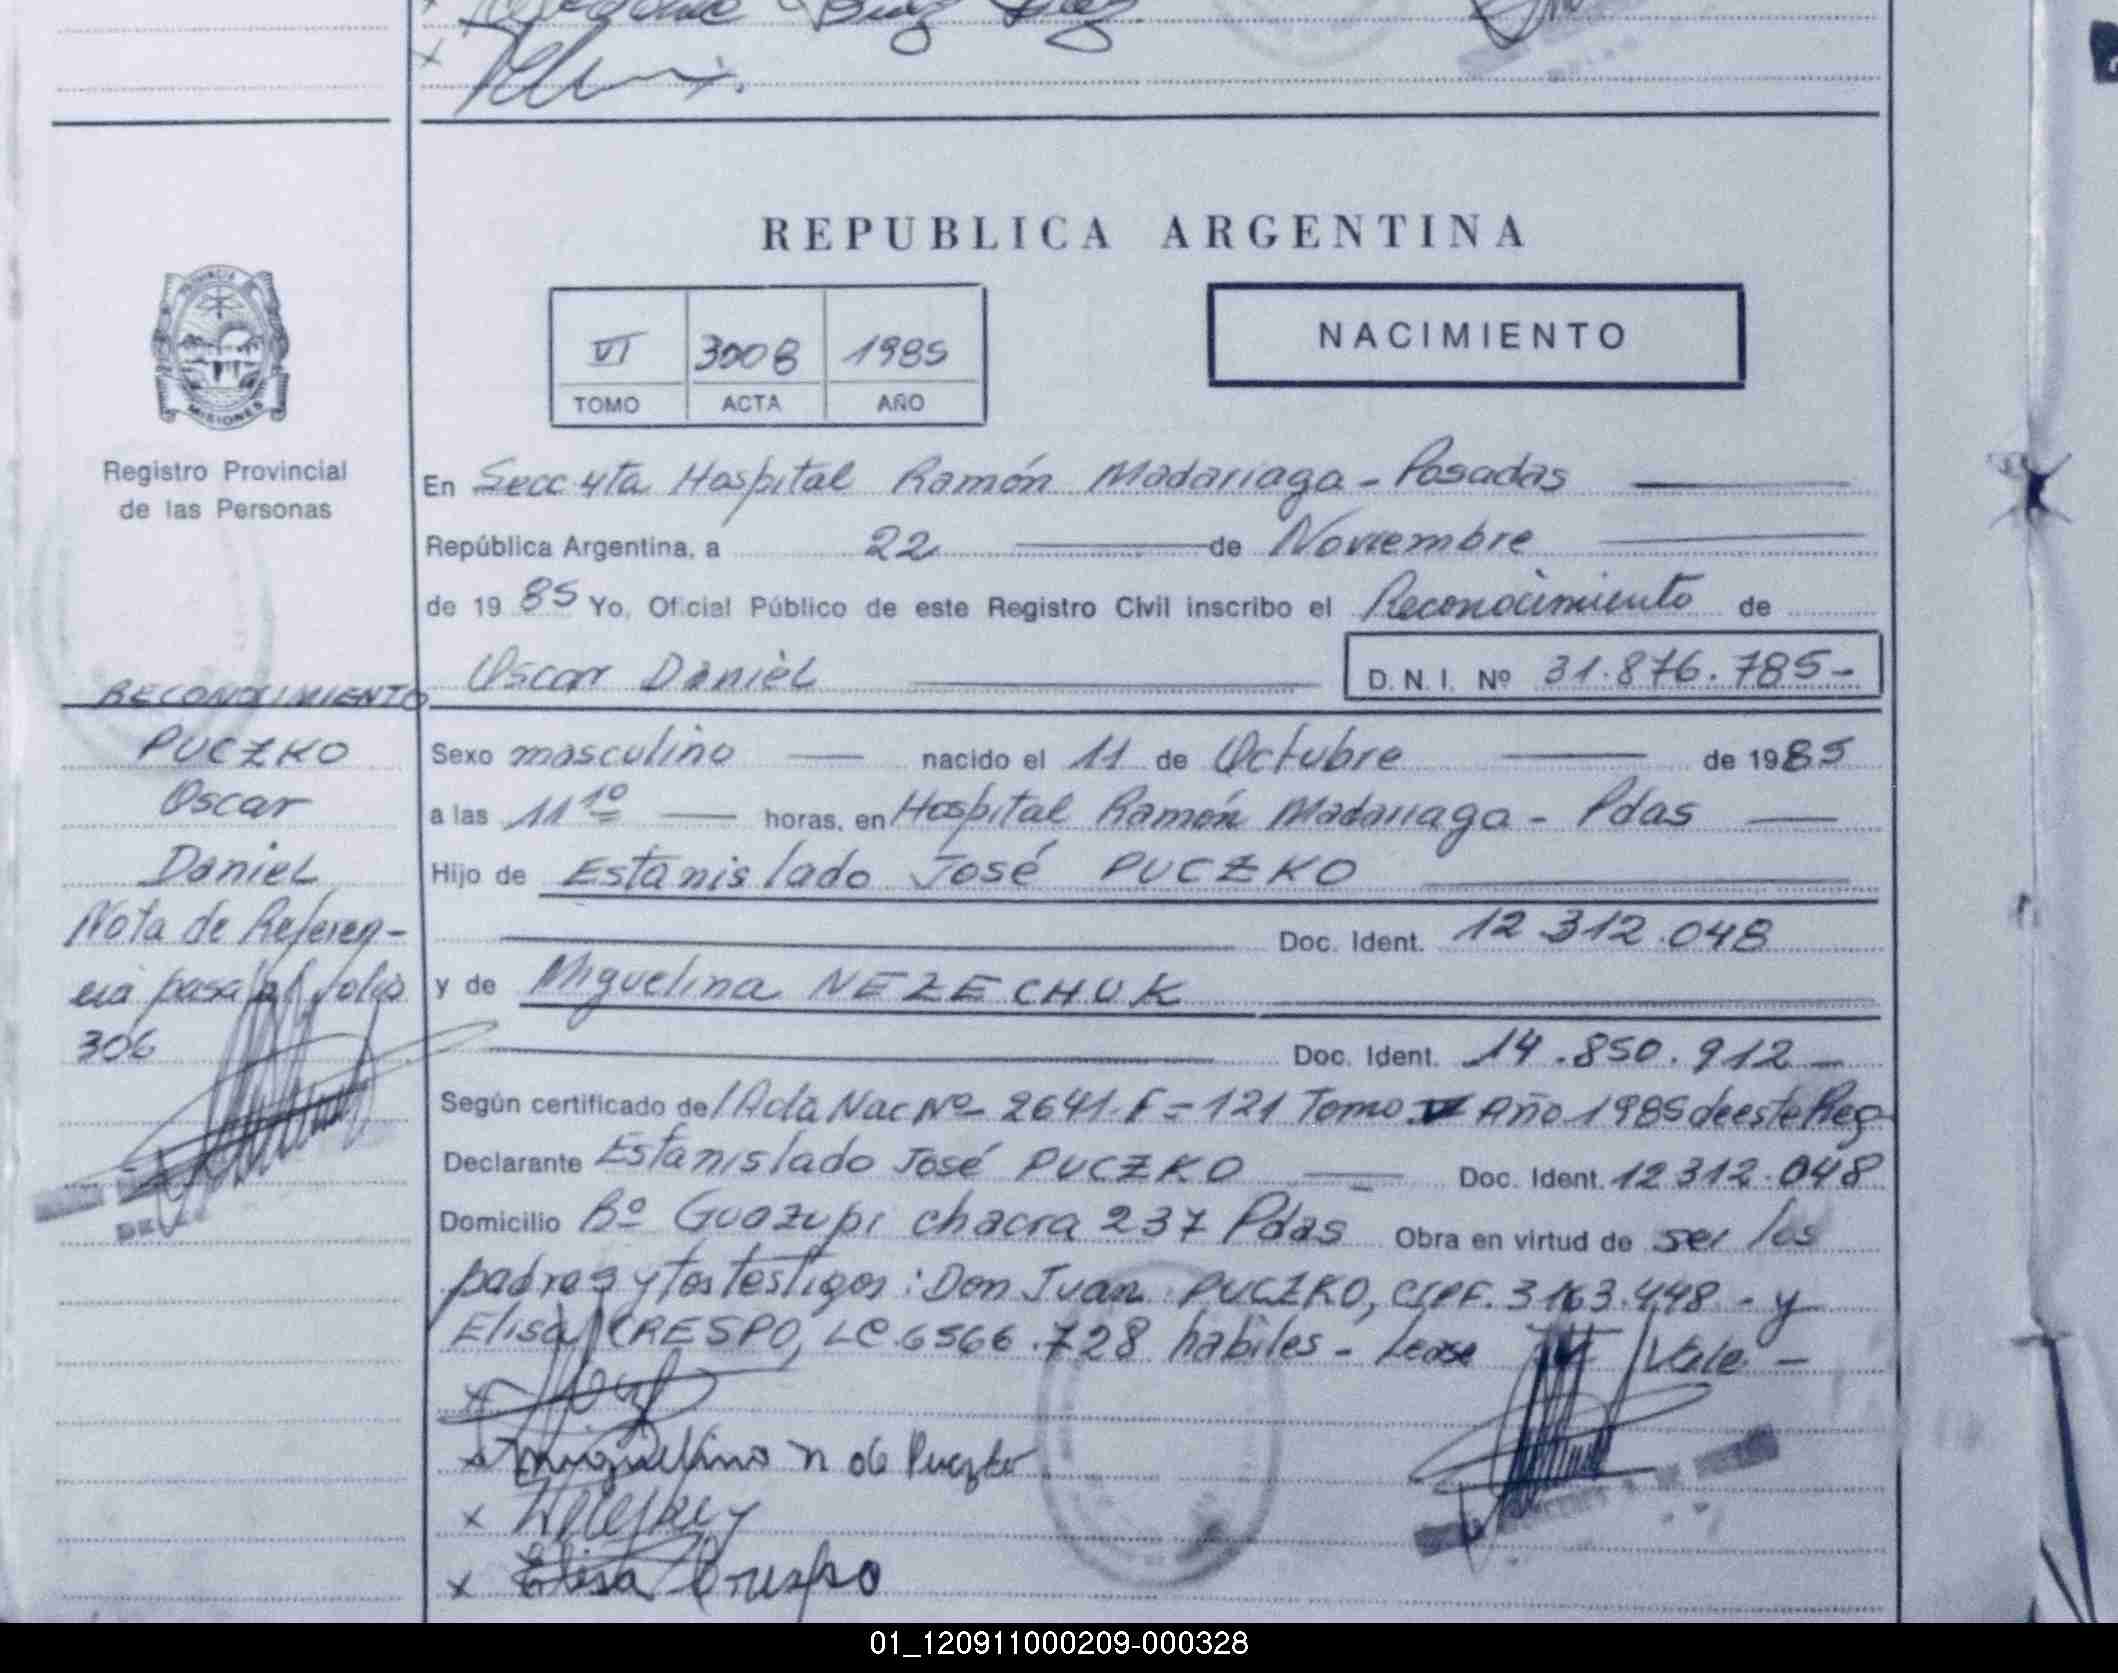 REPUBLICA ARGENTINA
VI 3008 1985
TOMO ACTA AÑO
NACIMIENTO
PROVINCIA
MISIONES
Registro Provincial
de las Personas
RECONOCIMIENTO
PUCZKO
Oscar
Daniel
Nota de Referen-
cia pasa al folio
306
En Secc 4ta Hospital Ramón Madariaga - Posadas
República Argentina, a 22 de Noviembre
de 1985 Yo, Oficial Público de este Registro Civil inscribo el Reconocimiento de
Oscar Daniel D.N.I. Nº 31.876.785-
Sexo masculino nacido el 11 de Octubre de 1985
a las 11 10 horas, en Hospital Ramón Madariaga - Pdas
Hijo de Estanislado José PUCZKO
Doc. Ident. 12.312.048
y de Miguelina NEZECHUK
Doc. Ident. 14.850.912-
Según certificado del Acta Nac Nº 2641-F=121 Tomo V Año 1985 de este Reg
Declarante Estanislado José PUCZKO Doc. Ident. 12.312.048
Domicilio Bº Guazupi chacra 237 Pdas Obra en virtud de ser los
padres y los testigos: Don Juan PUCZKO, CIPF. 3163.448 - y
Elisa CRESPO, LC.6566.728 habiles - Lease VI Vale -
x
x Miguelina N de Puczko
x
x Elisa Crespo
01_120911000209-000328